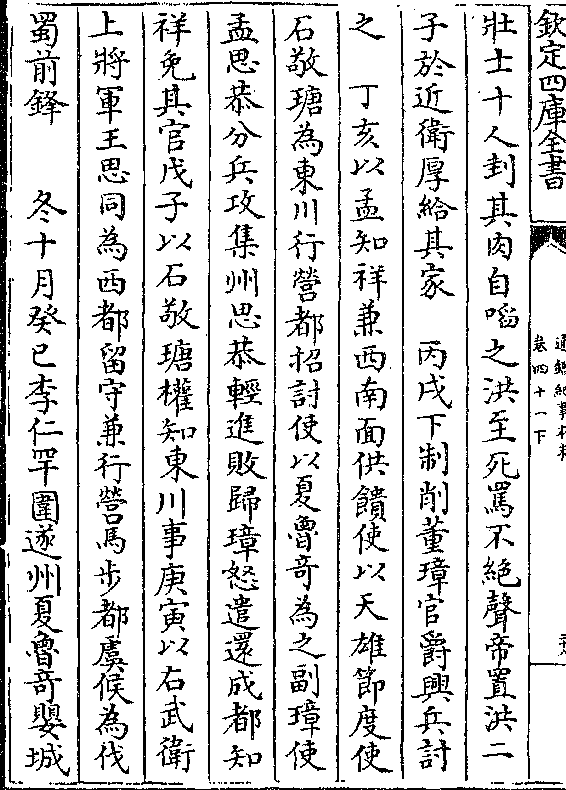 欽定四庫全書
通鑑紀事本末
卷四十一下
壯士十人刲其肉自啗之洪至死罵不絕聲帝置洪二
子於近衛厚給其家　丙戌下制削董璋官爵興兵討
之　丁亥以孟知祥兼西南面供饋使以天雄節度使
石敬瑭為東川行營都招討使以夏魯奇為之副璋使
孟思恭分兵攻集州思恭輕進敗歸璋怒遣還成都知
祥免其官戊子以石敬瑭權知東川事庚寅以右武衛
上將軍王思同為西都留守兼行營馬步都虞候為伐
蜀前鋒　冬十月癸巳李仁罕圍遂州夏魯奇嬰城